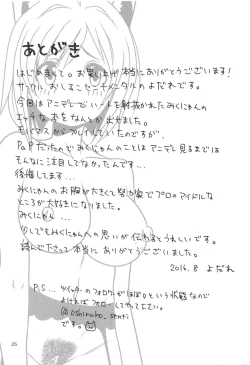 あとがき
はじめまして。お買い上げ本当にありがとうございます!
サークルおしるこセンチメンタルのよだれです。
今回はアニデレでハートを射抜かれたみくにゃんの
エッチな本をなんとか出せました。
モバマスからプレイしていたのですが、
PaPだったのでみくにゃんのことはアニデレ見るまでは
そんなに注目してなかたんです…
後悔してます…
みくにゃんのお胸が大きくて努力家でプロのアイドルな
ところが大好きになりました。
みくにゃん…
少しでもみくにゃんへの思いが伝わるとうれしいです。
読んで下さって本当にありがとうございました。
2016.8 よだれ
P.S… ツイッターのフォロワーがほぼ0という状態なので
よければフォローしてやってください。
@oshiruko_senti
です。
25